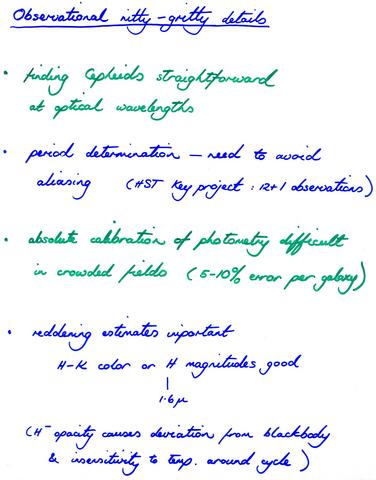 Observational nitty-gritty details
• finding Cepheids straightforward
at optical wavelengths
• period determination — need to avoid
aliasing (HST Key project : 12+1 observations)
• absolute calibration of photometry difficult
in crowded fields (5-10% error per galaxy)
• reddening estimates important
H-K color or H magnitudes good
|
1.6μ
(H⁻ opacity causes deviation from blackbody
& insensitivity to temp. around cycle)